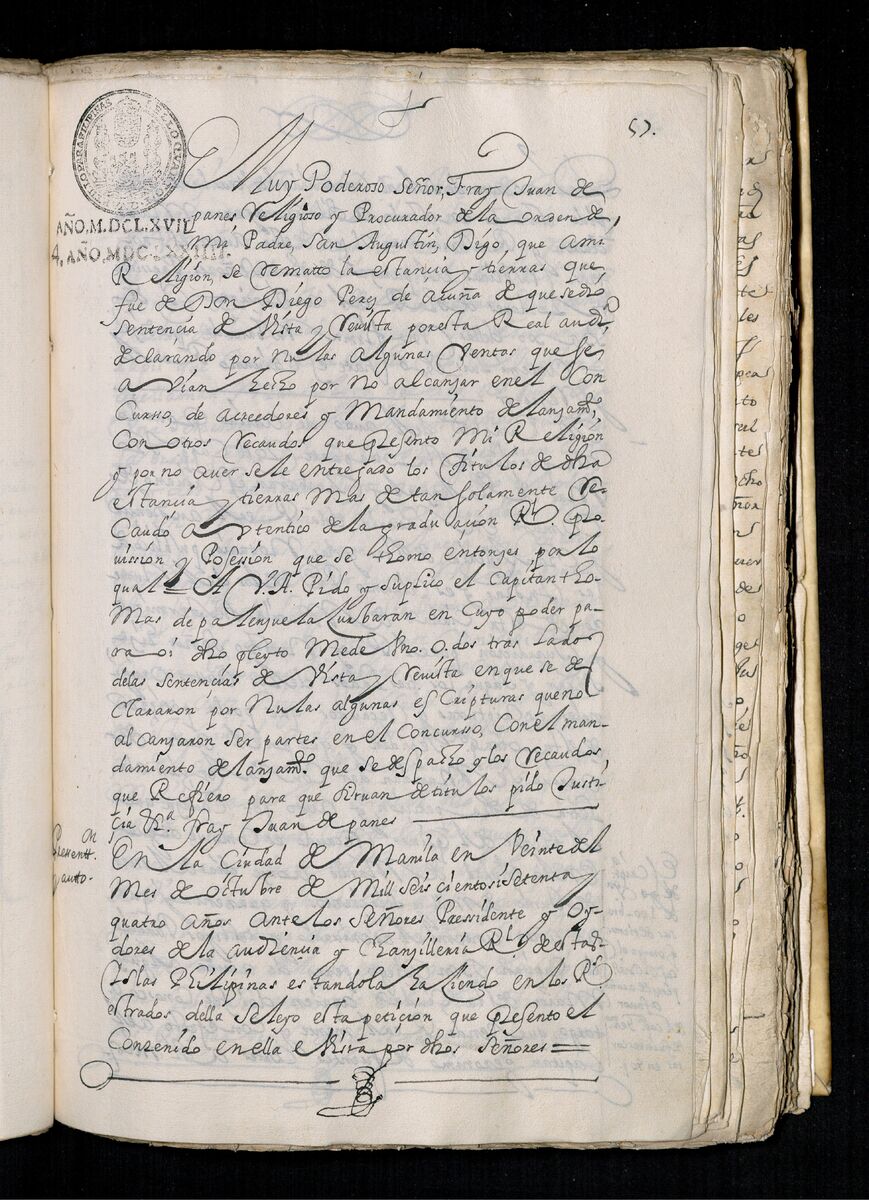 57.
SELLO QUARTO PARA FILIPINAS
AÑO, M. DCLXVIII
4, AÑO, MDCLXXIIII.
Muy Poderoso Señor, Fray Juan de
panes Religioso y Procurador de la orden de,
mi Padre, San Augustin, Digo, que ami
Religión, se rematto la estancia y tierras que
fue de Don Diego Perez de acuña de que se dió
sentencia de Vista y revista por esta Real audª,
declarando por Nulas algunas Ventas que se
avian hecho por no alcanzar en el Con
Curso, de acreedores y Mandamiento de lanzamº,
Con otros recaudos que presento Mi Religión
y por no aver se le entregado los Titulos de dha
estancia y tierras mas de tan solamente re-
Caudo avtentico de la graduación Rl. pro-
vission y Posession que se thomo entonzes por lo
qual = A V.A. Pido y suplico el Capitan tho-
Mas de palenzuela Zurbaran en Cuyo poder pa-
ra oi dho pleyto Me de Vno. o dos tras lados
delas sentencias de Vista y revista en que se de
Clararon por Nulas algunas escripturas que no
alcanzaron ser partes en el Concurso, Con el man-
damiento de lanzamº. que se despacho y los recaudos,
que Refiero para que situan de titulos pido Justi-
cia &ª. fray Juan de panes
Presentt.
y autto.
En la Ciudad de Manila en Veinte del
Mes de octubre de Mill seis cientos i setenta y
quatro años ante los Señores Pressidente y oy-
dores de la audiençia y Chanzilleria Rl. de estas
Islas Philipinas estandola haciendo en los Rs.
estrados della se leyo esta petición que presento el
Contenido en ella e Vista por dhos Señores =